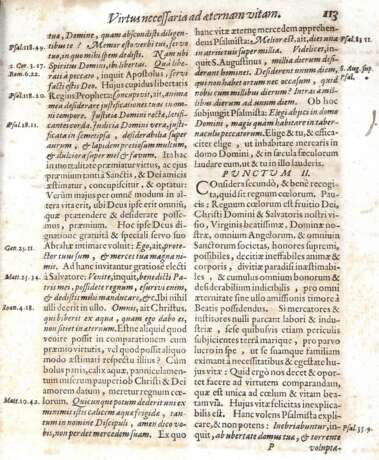 Virtus necessaria ad æternam vitam. 113
tua, Domine, quam abscondisti diligen-
tibus te? Memor esto verbi tui, servo
tuo, in quo mihi spem dedisti. An nobis
Spiritum Domini, & libertas. Quâ libe-
rati à peccato, inquit Apostolus, servi
facti estis Deo. Hujus cupidus libertatis
Regius Propheta: concupivit, ait, anima
mea desiderare justificationes tuas in omni
tempore. Justitiæ Domini rectæ, lætifi-
cantes corda. Judicia Domini vera, justifi-
cata in semetipsa, desiderabilia super
aurum, & lapidem pretiosum multum,
& dulciora super mel & favum. Ita hac
in mortalitate præmiatur virtus, ac ejus
præmium tanti à Sanctis, & Dei amicis
æstimatur, concupiscitur, & optatur:
Verùm majus per omnē modum in al-
tera vita erit, ubi Deus ipse erit omnia,
quæ prætendere & desiderate posse-
mus, præmium. Hoc ipse Deus di-
gnatione gratuitâ & speciali servo suo
Abrahæ intimare voluit: Ego, ait, prote-
ctor tuus sum, & merces tua magna ni-
mis. Ad hanc invitantur gratiose electi
à Salvatore: Venite, inquit, benedicti Pa-
tris mei, possidete regnum, esurivi enim,
& dedistis mihi manducare, &c. Ibi nihil
usu decrit in usu. Omnis, ait Christus,
qui biberit ex aqua, quam ego dabo ei,
non sitiet in æternum. Estne aliquid quod
venire possit in comparationem cum
præmio virtutis, vel quod possit aliquo
modo æstimari respectu illius? Cùm
bolus panis, calix aquæ, panniculamen-
tum miserum pauperiob Christi & Dei
amorem datum, meretur regnum cœ-
lorum. Quicunque potum dederit uni ex
minimis istis calicem aquæ frigidæ, tan-
tum in nomine Discipuli, amen dico vo-
bis, non perdet mercedem suam. Ex quo
hanc vitæ æternę mercedem apprehen-
dens Psalmista: Melior est, ait, dies una
in atriis tuis super millia. Videlicet, in-
quit S. Augustinus, millia dierum desi-
derant homines. Desiderent unum diem,
qui non habet ortum, & occasum; annos
multos esse cum diabolo cupimus? Intra
milibus dierum ad unum diem. Ob hoc
subjungit Psalmista: Elegi abjectus in domo
Domini, magis quàm habitare in taber-
naculis peccatorum. Elige & tu, & effica-
citer elige, ut inhabitare mercaris in
domo Domini, & in sæcula sæculorum
laudare eum, ut & tu in illo lauderis.
PUNCTUM II.
Considera secundò, & benè recogi-
ta, quid sit regnum cœlorum. Pau-
cis: Regnum cœlorum est fruitio Dei,
Christi Domini & Salvatoris nostri vi-
sio, Virginis beatissimæ, Dominæ no-
stræ, omnium Angelorum, & omnium
Sanctorum societas, honores supremi,
possibiles, deciticæ ineffabiles animæ &
corporis, divitiæ interminabiles, status
& cumulus omnium bonorum &
desiderabilium indicibilis, pro omni
æternitate sine ullo amissionis timore à
Beatis possidendus. Si mercatores &
institores nulli parcant labori & indu-
striæ, sese quibusvis etiam periculis
subjicientes terrâ marique, pro parvo
lucro in spe, ut se suamque familiam
eximant à necessitatibus & egestate hu-
jus vitæ: Quid ergò nos decet & opor-
tet facere ad virtutem comparandam,
quæ est unica ad cœlum & vitam bea-
tam via? Hujus vitæ felicitas inexplica-
bilis est. Hanc volens Psalmista expli-
care, & non potens: Inebriabuntur, in-
quit, ab ubertate domus tuæ, & torrente
P
volupta-
Psal. 118. 49.
2. Cor. 3. 17.
Rom. 6. 22.
Psal. 118. 20.
Psal. 18. 11.
Gen. 15. 11.
Matt. 25. 34.
Ioan. 4. 18.
Matt. 10. 42.
Psal. 83 11.
S. Aug. sup.
Psal.
Psal. 35. 9.